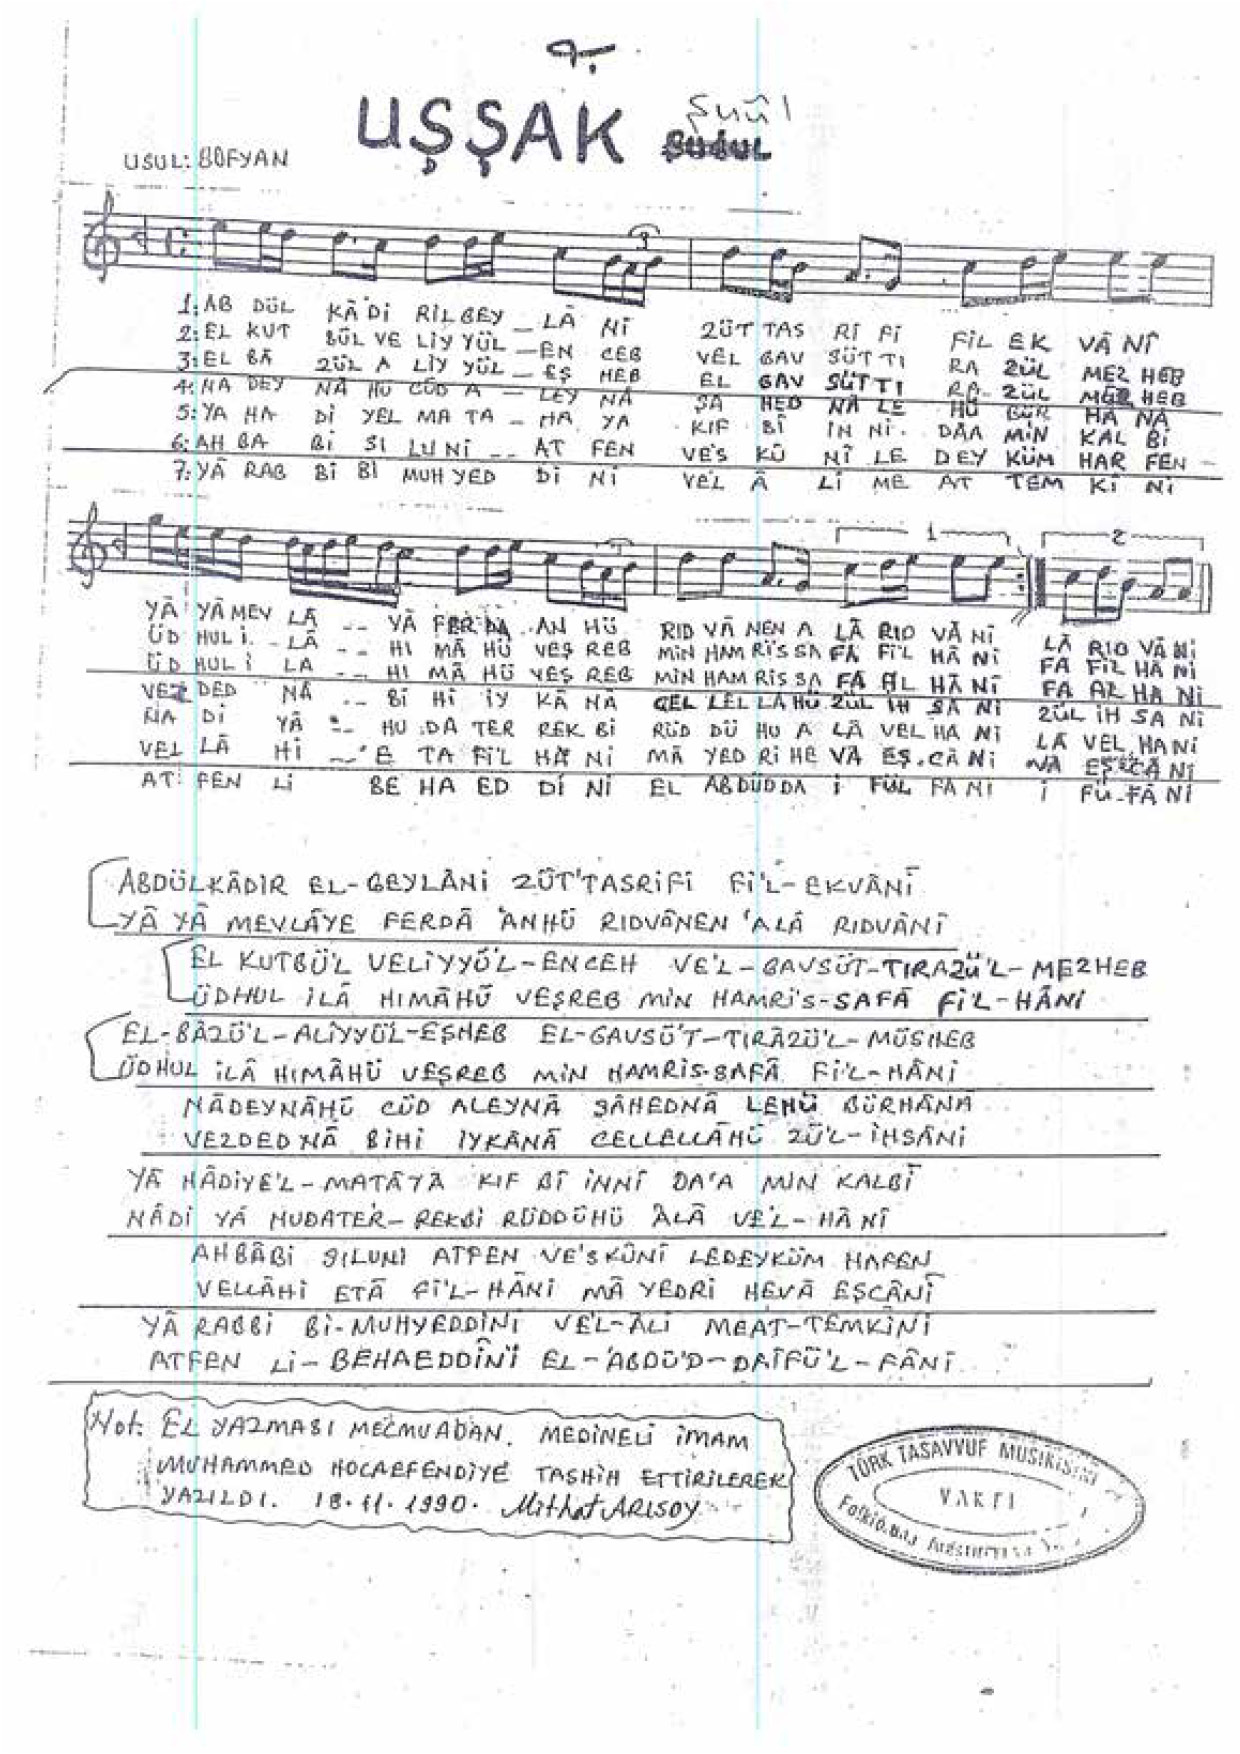 UŞŞAK Şuûl
USUL: SOFYAN
3
1: AB DÜL KÂ Dİ RİL GEY _ LÂ NÎ ZÜT TAS RÎ Fİ FİL EK VÂ NÎ
2: EL KUT BÜL VE LİY YÜL _ EN CEB VEL GAV SÜT TI RA ZÜL MEZ HEB
3: EL BÂ ZÜL A LİY YÜL _ EŞ HEB EL GAV SÜT TI RA- ZÜL HEB
4: NA DEY NÂ HU CÜD A _ LEY NÂ ŞA HED NÂ LE HÛ BÜR HÂ NA
5: YA HA DÎ YEL MA TA _ HA YA KIF BÎ İN NÎ. DAA MİN KAL BÎ
6: AH BA Bİ SI LU NÎ _ _ AT FEN VE'S KÛ NÎ LE DEY KÜM HAR FEN _
7: YÂ RAB Bİ Bİ MUH YED DÎ NÎ VE'L Â Lİ ME AT TEM KÎ NÎ
1 2
YÂ YÂ MEV LÂ _ _ YÂ FER DA AN HÜ RID VÂ NEN A LÂ RID VÂ NÎ LÂ RID VÂ NÎ
ÜD HUL İ. LÂ _ _ Hİ MÂ HÜ VEŞ REB MİN HAM Rİ'S SA FÂ Fİ'L HÂ Nİ FA FİL HÂ Nİ
ÜD HUL İ LA _ _ Hİ MÂ HÜ VEŞ REB MİN HAM RİS SA FÂ AL HÂ NÎ FA AL HA Nİ
VEZ DED NÂ _ _ Bİ Hİ İY KÂ NÂ CEL LEL LÂ HÜ ZÜL İH SA Nİ ZÜL İH SA Nİ
NA Dİ YÂ _ _ HU DA TER REK Bİ RÜD DÜ HU A LÂ VEL HA Nİ LA VEL HANİ
VEL LÂ Hİ _ E TA Fİ'L HÂ Nİ MÂ YED Rİ HE VÂ EŞ CÂ Nİ VA EŞ CÂ Nİ
AT FEN Lİ BE HA ED DÎ NÎ EL ABDÜD DA İ FÜL FA Nİ İ FÜ-FÂ NÎ
ABDÜLKÂDİR EL-GEYLÂNİ ZÜT'TASRİFİ Fİ'L-EKVÂNÎ
YÂ YÂ MEVLÂYE FERDÂ 'ANHÜ RIDVÂNEN 'ALÂ RIDVÂNÎ
EL KUTBÜ'L VELİYYÜ'L-ENCEH VE'L-GAVSÜT-TIRAZÜ'L-MEZHEB
ÜDHUL İLÂ HIMÂHÜ VEŞREB MİN HAMRİ'S-SAFÂ Fİ'L-HÂNİ
EL-BÂZÜ'L-ALİYYÜL-EŞHEB EL-GAVSÜ'T-TIRÂZÜ'L-MÜŞHEB
ÜDHUL İLÂ HIMÂHÜ VEŞREB MİN HAMRİS-SAFÂ Fİ'L-HÂNİ
NÂDEYNÂHÜ CÜD ALEYNÂ ŞÂHEDNÂ LEHÜ BÜRHÂNÂ
VEZDEDNÂ BİHİ İYKÂNÂ CELLELLÂHÜ ZÜ'L-İHSÂNİ
YÂ HÂDİYE'L-MATÂYÂ KIF BÎ İNNÎ DA'A MİN KALBÎ
NÂDİ YÂ HUDATER-REKBİ RÜDDÛHÜ ALÂ VE'L-HÂNÎ
AHBÂBİ SILUNİ ATFEN VE'SKÛNÎ LEDEYKÜM HAFEN
VELLÂHİ ETÂ Fİ'L-HÂNİ MÂ YEDRİ HEVÂ EŞCÂNÎ
YÂ RABBİ Bİ-MUHYEDDİNİ VE'L-ÂLİ MEAT-TEMKÎNİ
ATFEN Lİ-BEHAEDDÎNİ EL-'ABDÜ'D-DAÎFÜ'L-FÂNÎ
Not: EL YAZMASI MECMUADAN. MEDİNELİ İMAM
MUHAMMED HOCAEFENDİYE TASHİH ETTİRİLEREK
YAZILDI. 18.11.1990. Mithat ARISOY
TÜRK TASAVVUF MUSIKİSİNİ
VAKFI